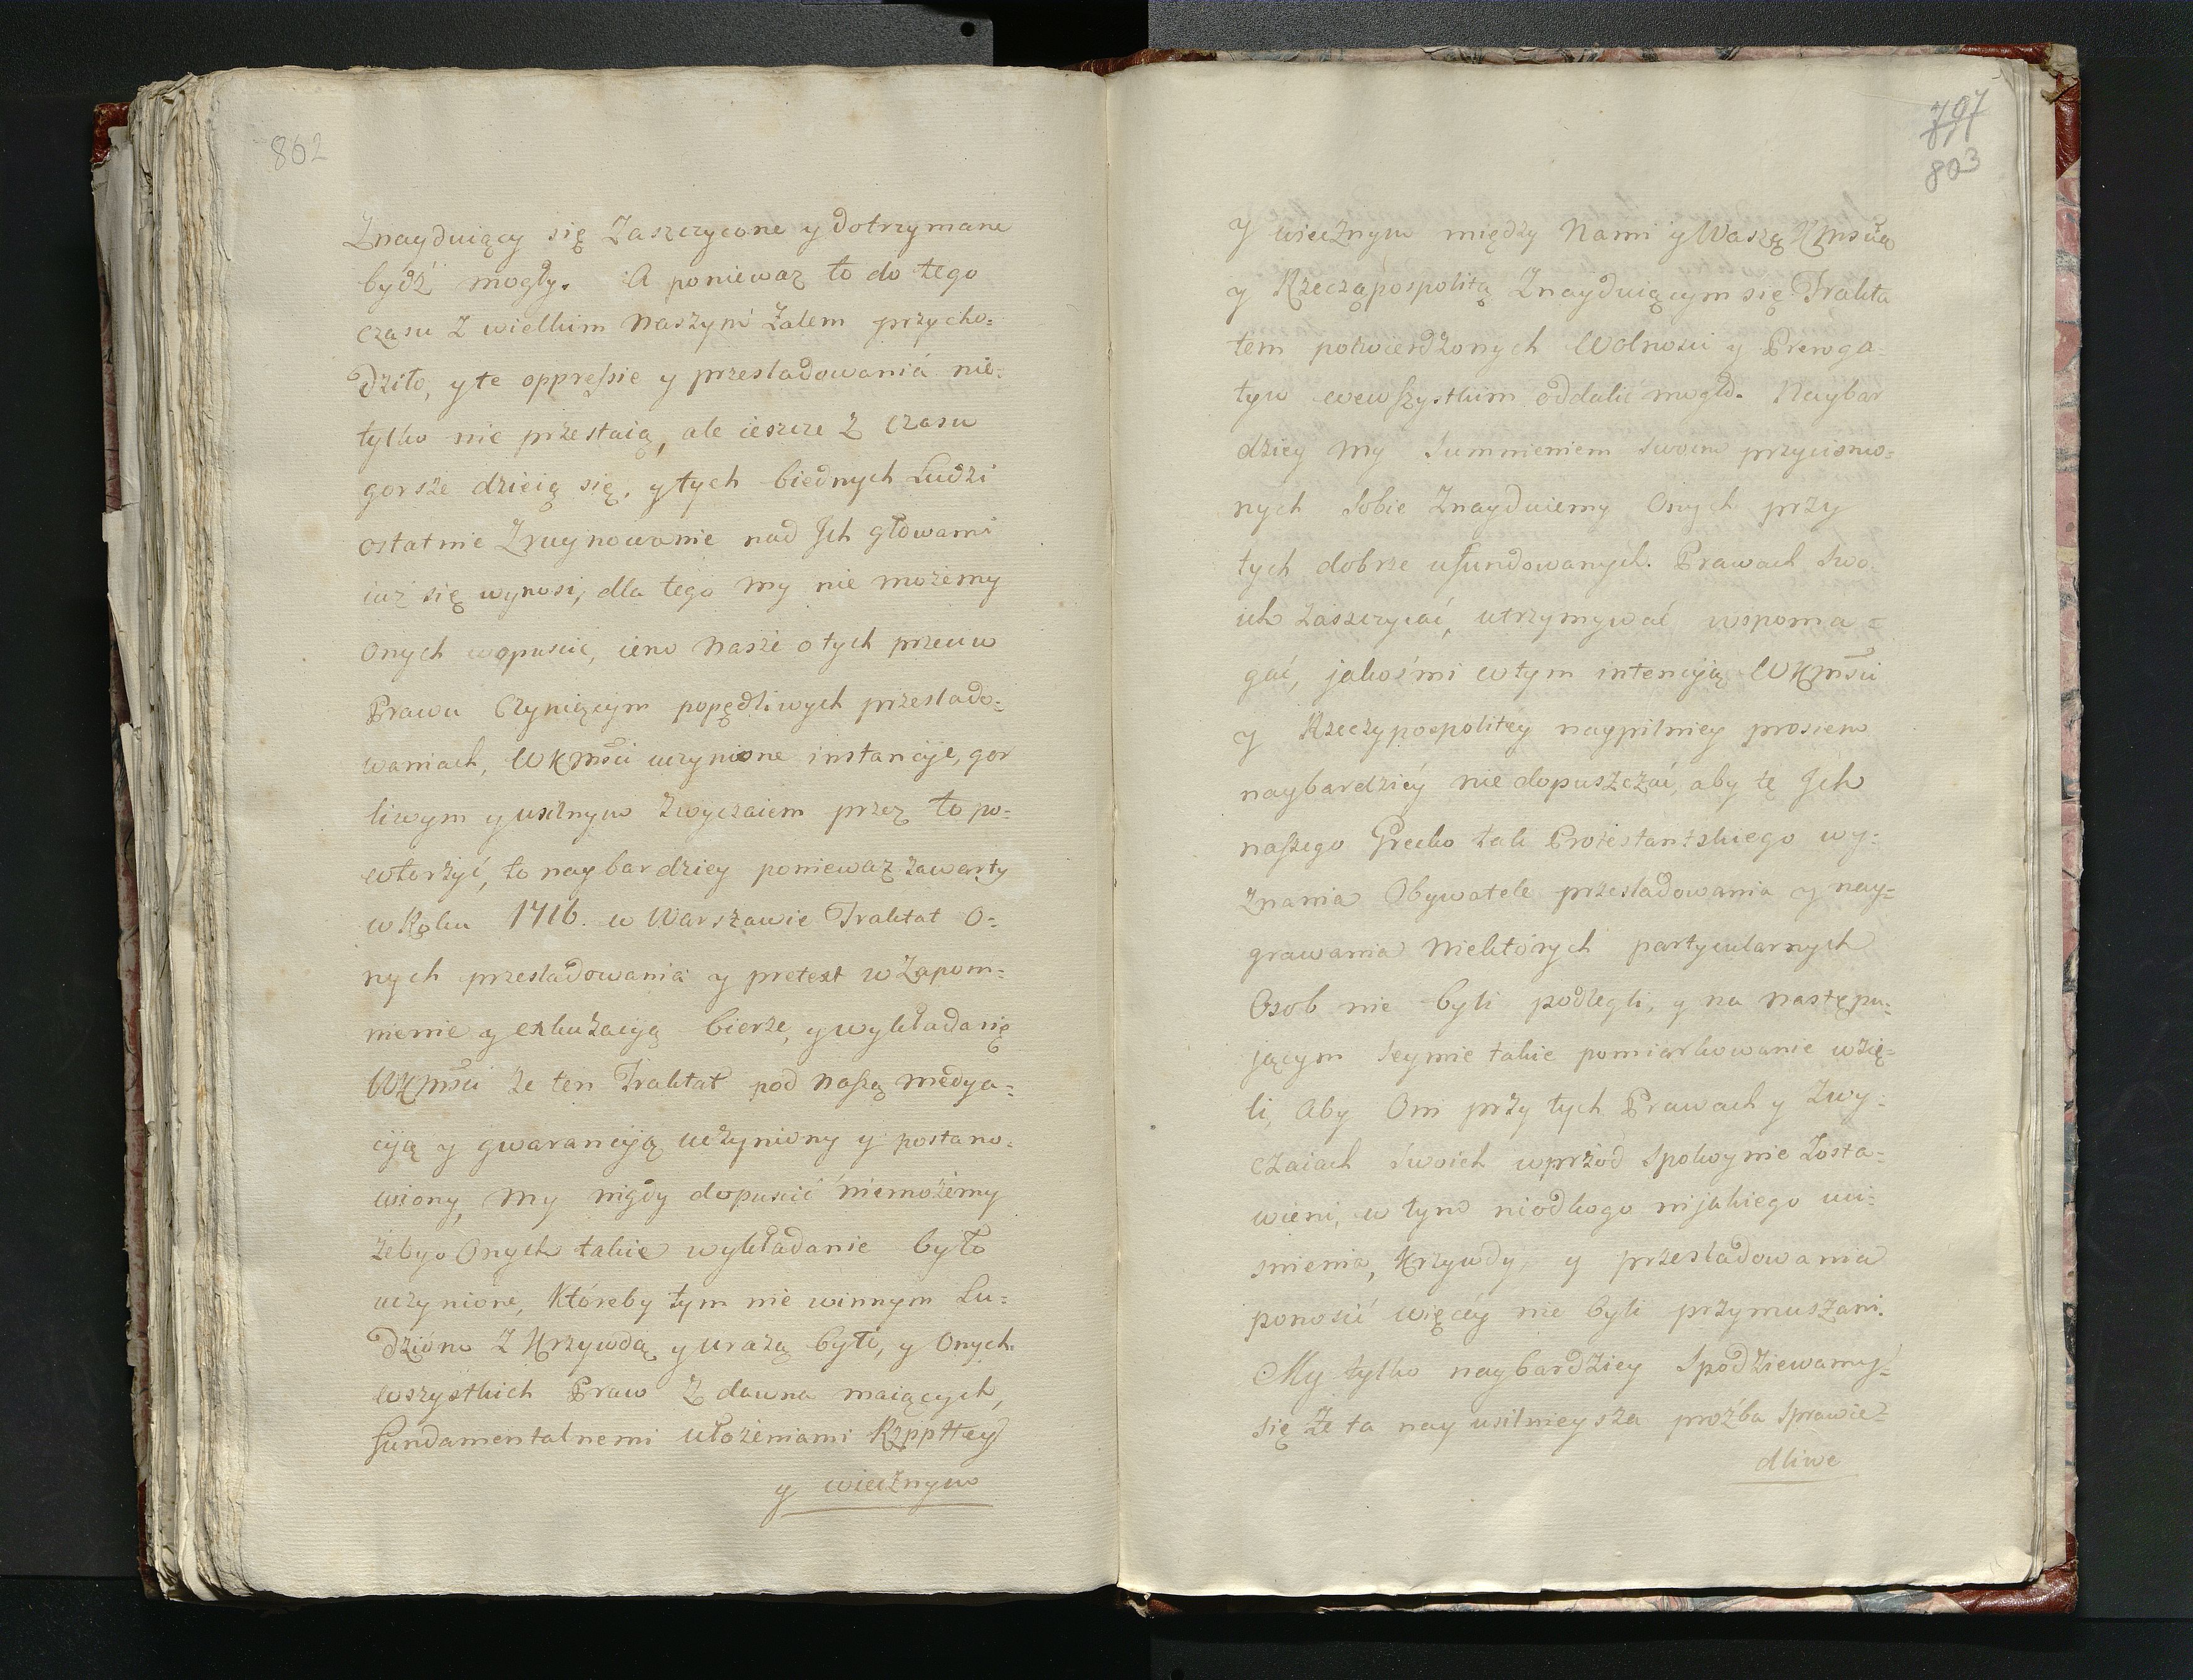 862
Znayduiący się Zaszczycone y dotrzymane
bydź mogły. A poniewaz to do tego
czasu z wielkim Naszym Zalem przycho=
dziło, y te oppressie y przesladowaniá nie=
tylko nie przestaią, ale ieszcze z Czasu
gorsze dzieią się, y tych biednych Ludzi
ostatnie Zruynowanie nad Jch głowami
iuz się wynosi, dla tego my nie możemy
Onych opuscic, ieno Nasze o tych przeciw
Prawu Czyniącym popędliwych przeslado=
waniach, WKMści uczynione instancije, gor
liwym y usilnym zwyczaiem przez to po=
wtorzyć, to naybardziey poniewaz zawarty
w Roku 1716. w Warszawie Traktat O=
nych przesladowania y pretext w Zapom=
nienie y exkuzacyą bierze, y wykłada się
WKMści że ten Traktat pod naszą medya=
cyą y gwarancyją uczyniony y postano=
wiony, My nigdy dopuscić niemożemy
żeby o Onych takie wykładanie było
uczynione, któreby tym nie winnym Lu=
dziom z Krzywdą y urazą było, y Onych
wszystkich Praw z dawna maiących,
fundamentalnemi ułożeniami Rzppttey
y wiecznym
797
803
y wiecznym między Nami y Waszą KMścią
y Rzecząpospolitą Znayduiącym się Trakta
tem potwierdzonych Wolnosci y Preroga
tyw wewszystkim oddalić mogło. Naybar
dziey my Sumnieniem Swoim przycisnio=
nych sobie Znayduiemy Onych przy
tych dobrze ufundowanych. Prawach Swo
ich zaszczycać, utrzymywać wspoma=
gać, jakośmi w tym intencyją WKMści
y Rzeczypospolitey naypilniey prosiem
naybardziéy nie dopuszczać, aby tę Jch
naszego Grecko tak Protestantskiego wy=
znania Obywatele przesladowania y nay=
grawania Niektórych partycularnych
Osob nie byli podlegli, y na następu=
jącym Seymie takie pomiarkowanie wzię=
li, Aby Oni przy tych Prawach y Zwy=
czaiach Swoich wprzod Spokoynie Zosta=
wieni, w tym niodkogo nijakiego uci=
snienia, Krzywdy, y przesladowania
ponosić więcéy nie byli przymuszani.
My tylko naybardziey Spodziewamy=
się Że ta nay usilnieysza proźba Sprawie=
dliwe